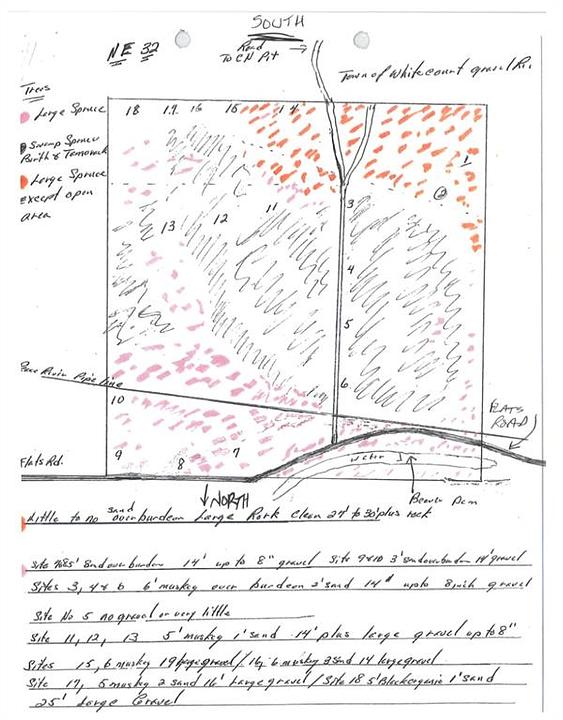 SOUTH
NE 32
Road
To CN Pit
Town of Whitecourt gravel Pi
Trees
Large Spruce
Swamp Spruce
Birth & Tamarack
Large Spruce
except open
area
18 17 16 15 14
1
2
3
13 12 11
4
5
6
Pipe line
10
FLATS
ROAD
9 8 7
Flats Rd.
water
NORTH
Beaver Dam
Little to no sand overburden Large Rock Clean 27' to 30' plus rock
Site 7&8 5' Sand over burden 14' up to 8" gravel Site 9&10 3' Sand over burden 14' gravel
Sites 3, 4 & 6 6' muskeg over burden 2' sand 14' up to 8 inch gravel
Site No 5 no gravel or very little
Site 11, 12, 13 5' muskeg 1' sand 14' plus large gravel up to 8"
Sites 15, 6 muskeg 19 large gravel / 16, 6 muskeg 2 sand 14 large gravel
Site 17, 5 muskeg 2 sand 16' Large gravel / Site 18 5' Black organic 1' sand
25' Large Gravel